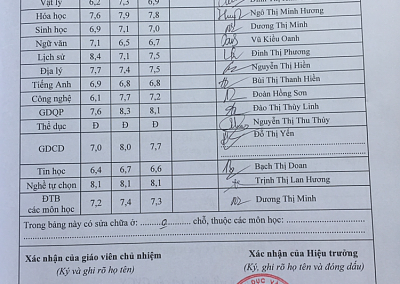 Vật lý 6,2 7,3 6,9
Hóa học 7,6 7,9 7,8 Ngô Thị Minh Hương
Sinh học 6,9 7,1 7,0 Dương Thị Minh
Ngữ văn 7,1 6,5 6,7 Vũ Kiều Oanh
Lịch sử 8,4 7,1 7,5 Đinh Thị Phương
Địa lý 7,7 7,4 7,5 Nguyễn Thị Hiền
Tiếng Anh 6,9 6,8 6,8 Bùi Thị Thanh Hiền
Công nghệ 6,1 7,7 7,2 Đoàn Hồng Sơn
GDQP 7,6 8,3 8,1 Đào Thị Thùy Linh
Thể dục Đ Đ Đ Nguyễn Thị Thu Thủy
GDCD 7,0 8,0 7,7 Đỗ Thị Yến
Tin học 6,4 6,7 6,6 Bạch Thị Doan
Nghề tự chọn 8,1 8,1 8,1 Trịnh Thị Lan Hương
ĐTB
các môn học 7,2 7,4 7,3 Dương Thị Minh
Trong bảng này có sửa chữa ở: 0 chỗ, thuộc các môn học:
Xác nhận của giáo viên chủ nhiệm Xác nhận của Hiệu trưởng
(Ký và ghi rõ họ tên) (Ký, ghi rõ họ tên và đóng dấu)